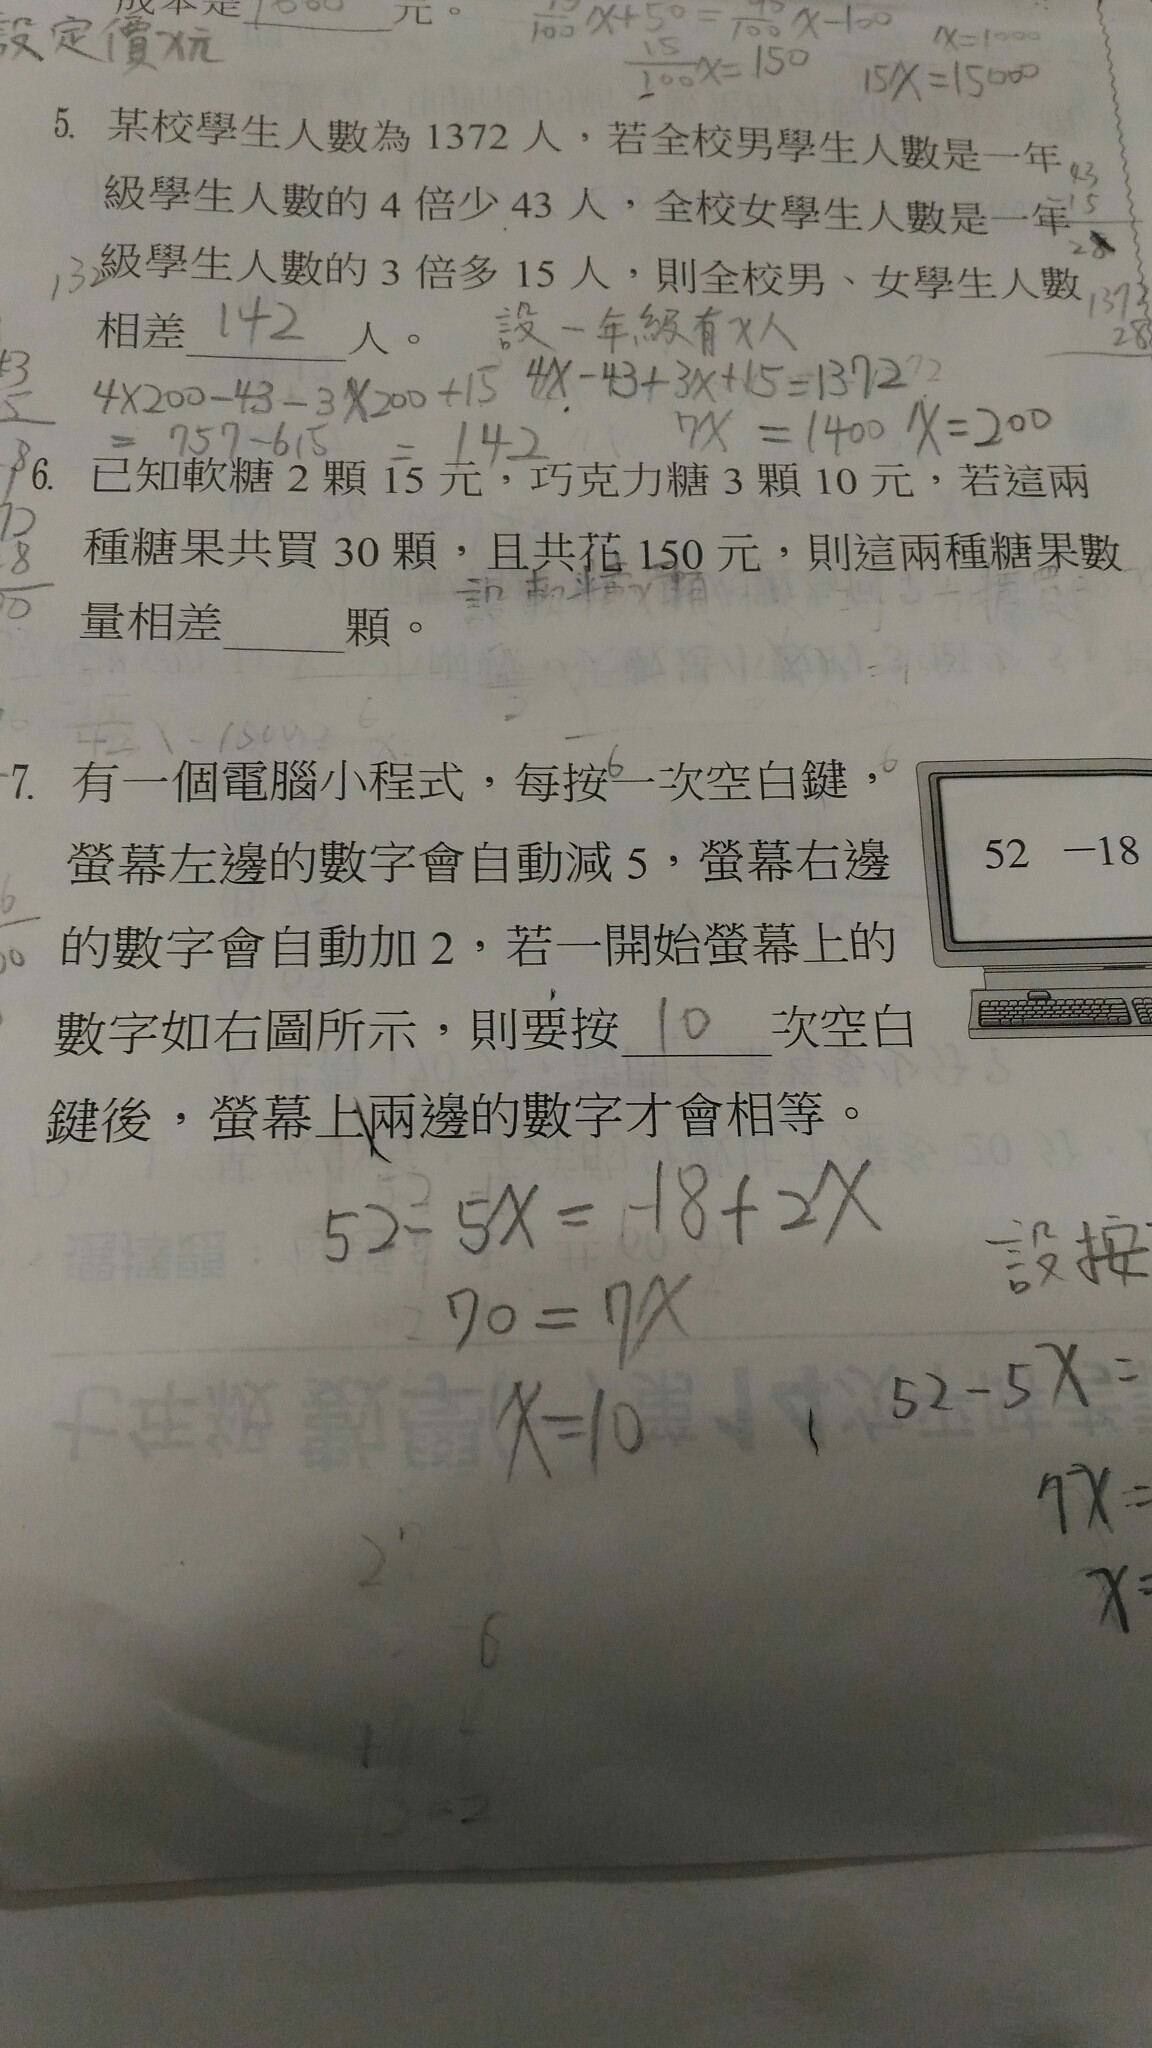 成本是1000元。
設定價x元
15/100 x=150
x=1000
15x=15000
5. 某校學生人數為 1372 人，若全校男學生人數是一年
級學生人數的 4 倍少 43 人，全校女學生人數是一年
級學生人數的 3 倍多 15 人，則全校男、女學生人數
相差 142 人。
設一年級有x人
4x-43+3x+15=1372
7x=1400 x=200
4×200-43-3×200+15
= 757-615 = 142
6. 已知軟糖 2 顆 15 元，巧克力糖 3 顆 10 元，若這兩
種糖果共買 30 顆，且共花 150 元，則這兩種糖果數
量相差_____顆。
設軟糖x顆
7. 有一個電腦小程式，每按一次空白鍵，
螢幕左邊的數字會自動減 5，螢幕右邊
的數字會自動加 2，若一開始螢幕上的
數字如右圖所示，則要按 10 次空白
鍵後，螢幕上兩邊的數字才會相等。
52 −18
52-5x=-18+2x
70=7x
x=10
設按
52-5x=
7x=
x=